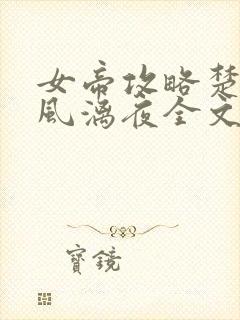 女帝攻略楚
風漓夜全文
寶鏡